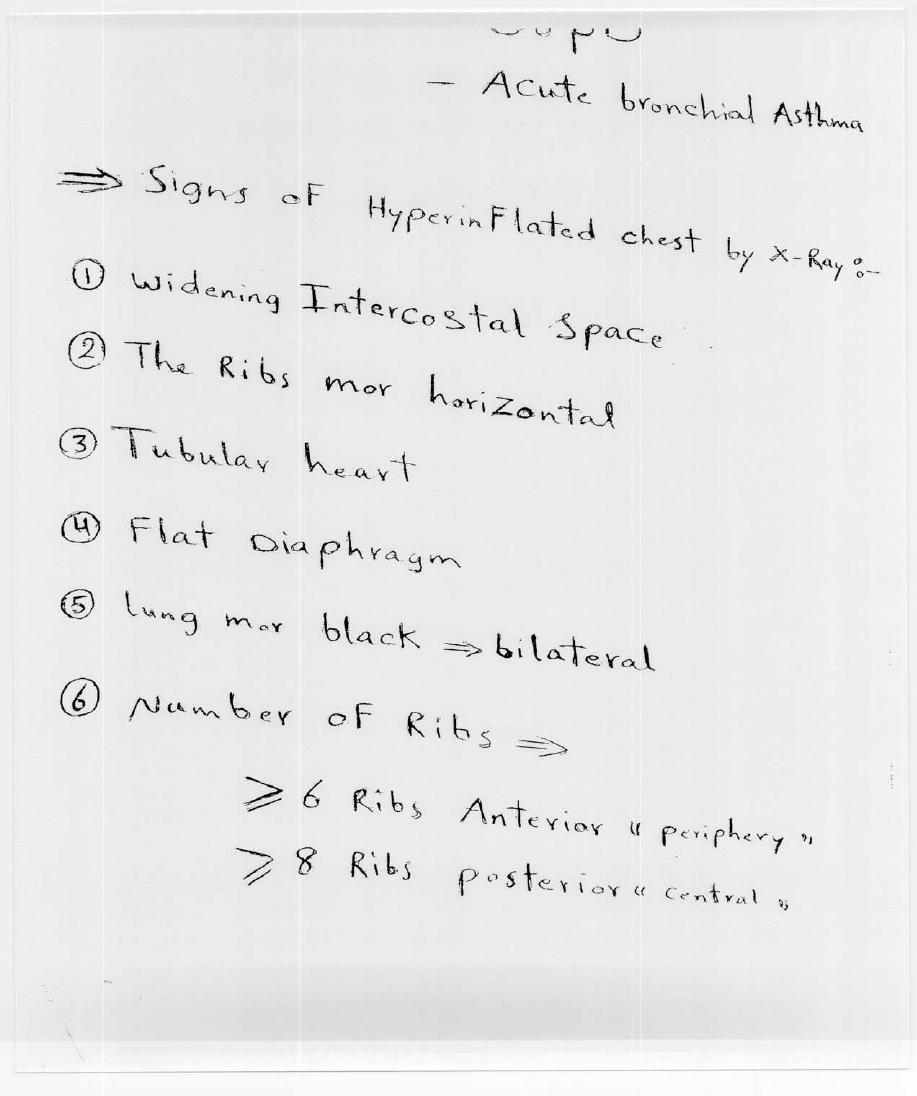 - Acute bronchial Asthma
⇒ Signs of Hyperinflated chest by X-Ray :-
① Widening Intercostal Space
② The Ribs mor horizontal
③ Tubular heart
④ Flat Diaphragm
⑤ lung mor black ⇒ bilateral
⑥ Number of Ribs ⇒
⩾ 6 Ribs Anterior " periphery "
⩾ 8 Ribs posterior " central "